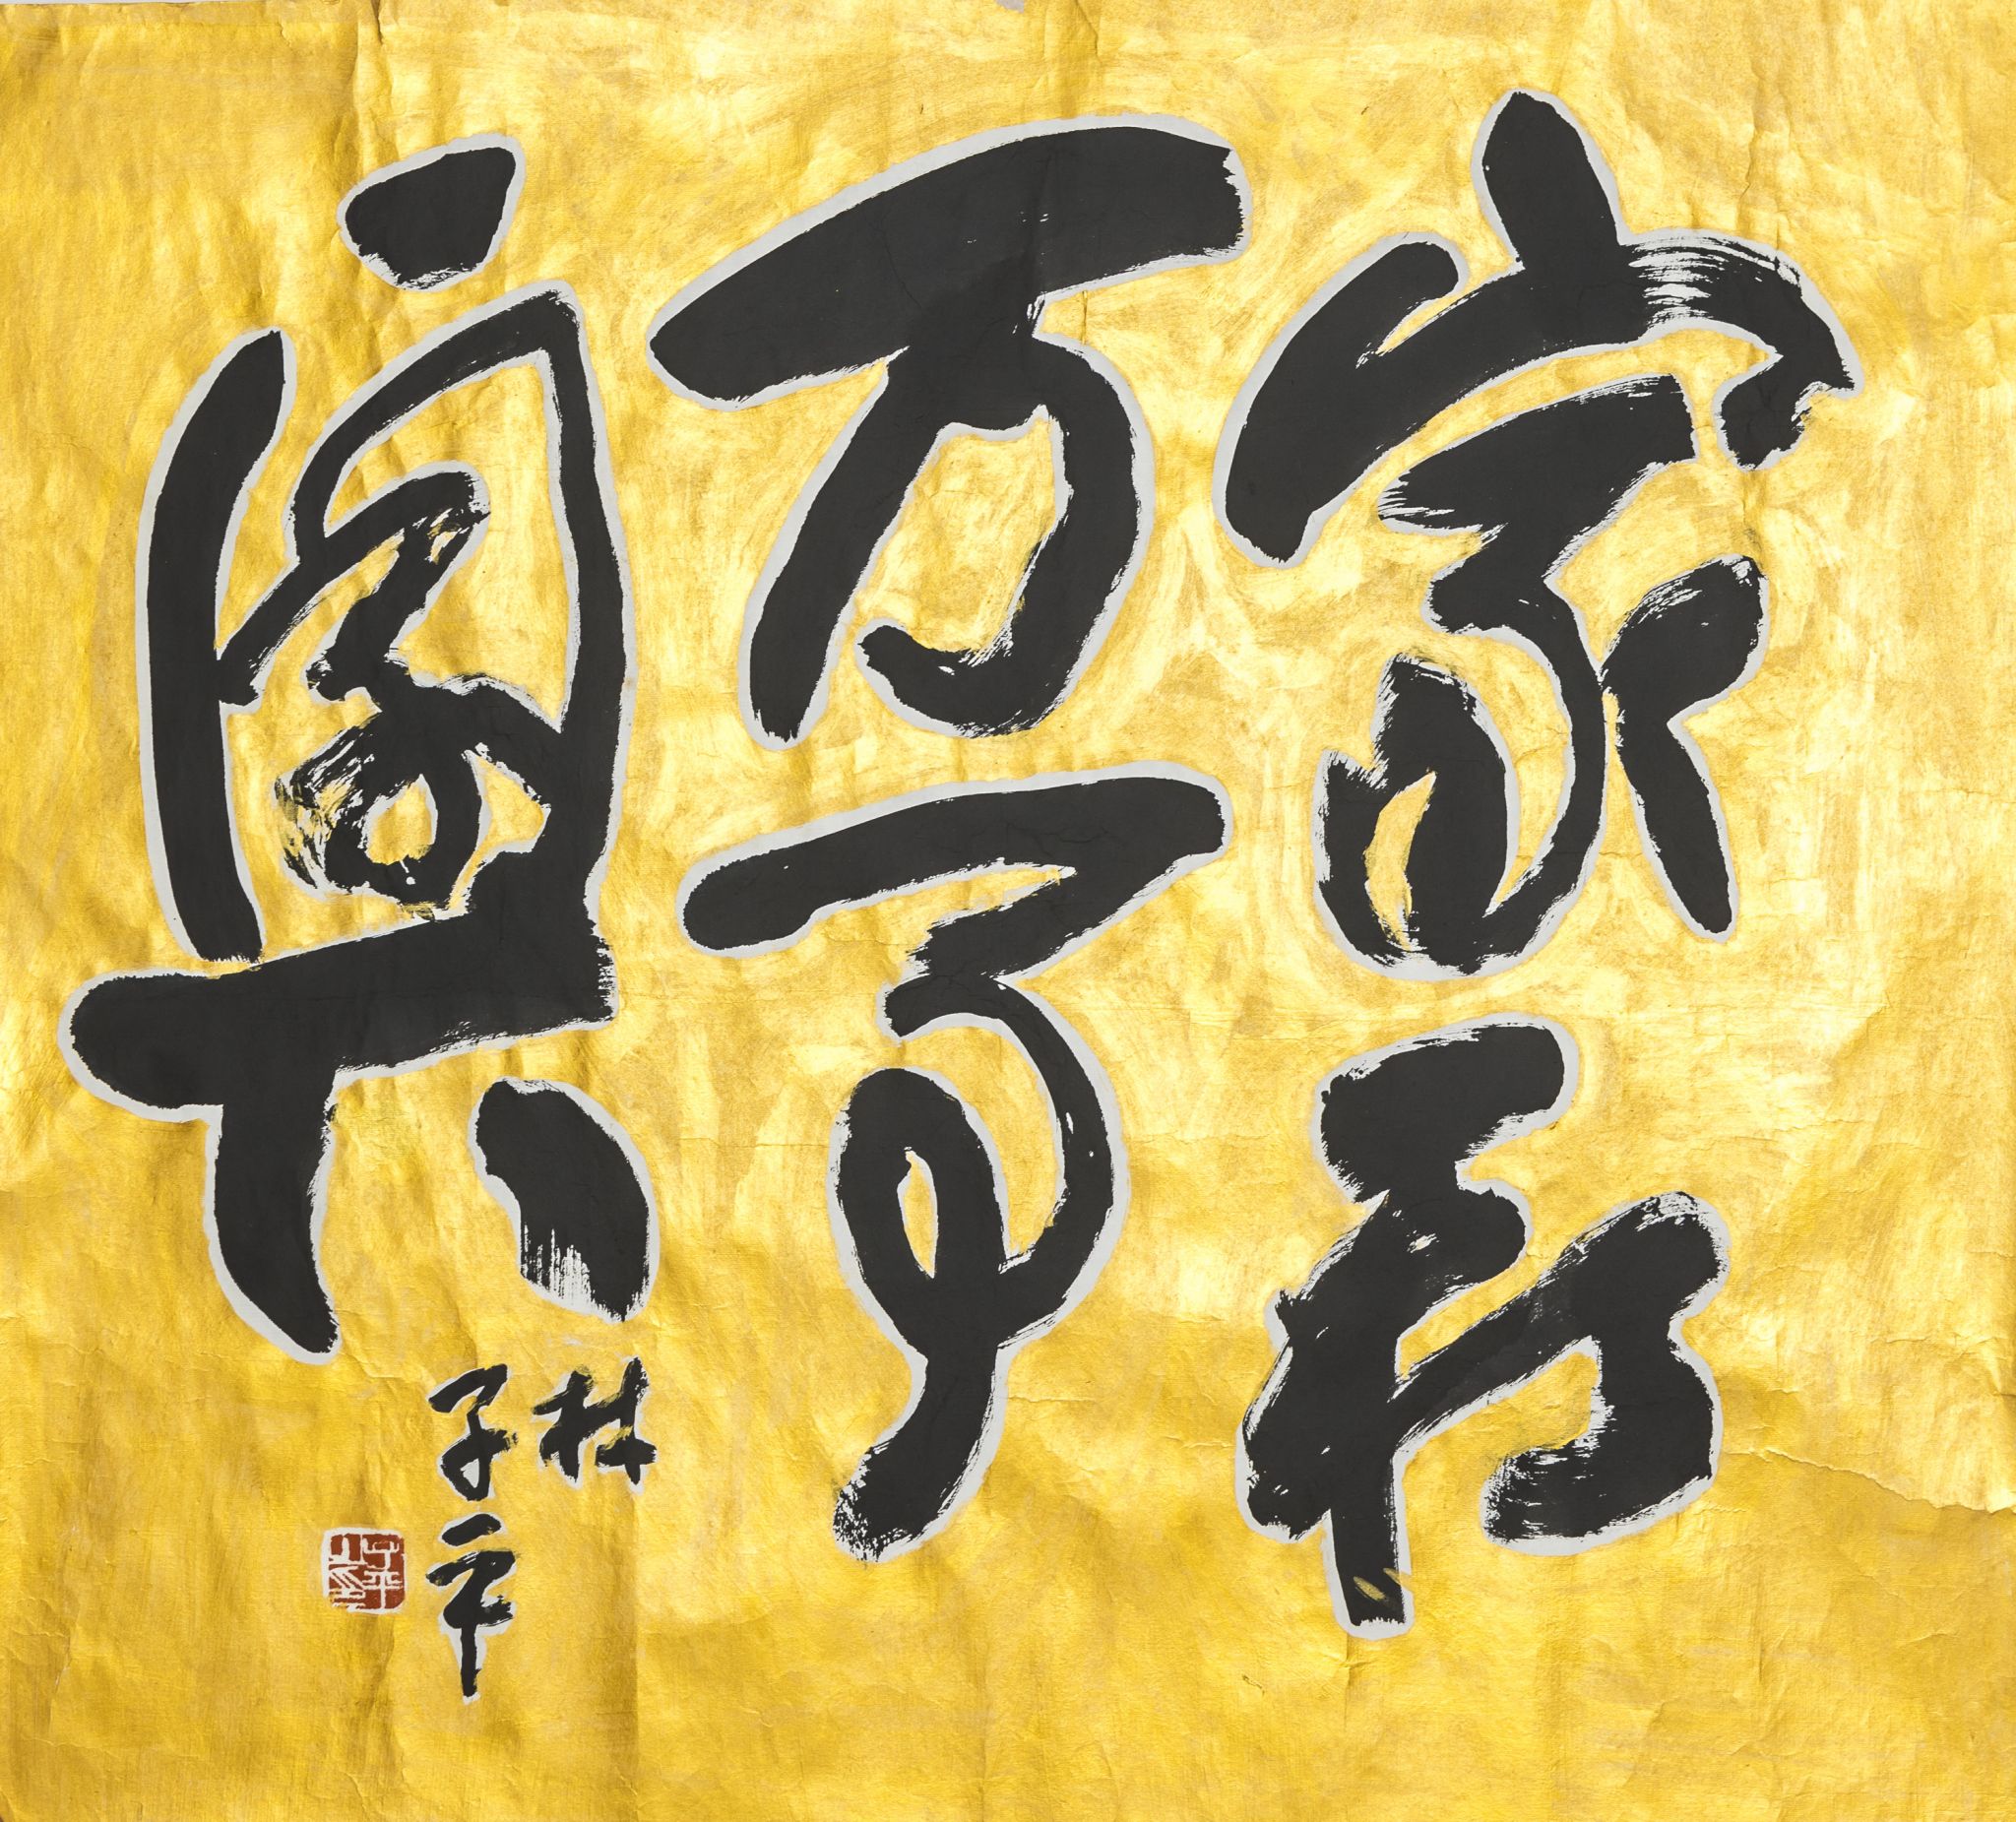 家和
万事
興
林
子平